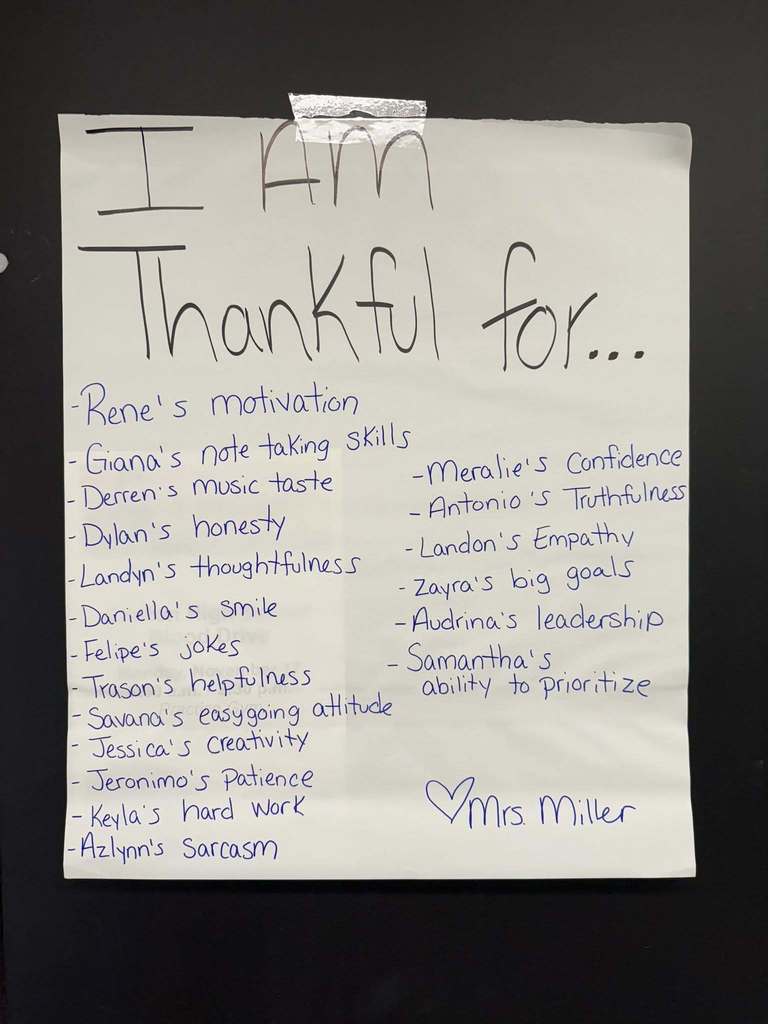 I AM
Thankful for...
- Rene's motivation
- Giana's note taking skills
- Derren's music taste
- Dylan's honesty
- Landyn's thoughtfulness
- Daniella's smile
- Felipe's jokes
- Trason's helpfulness
- Savana's easygoing attitude
- Jessica's creativity
- Jeronimo's Patience
- Keyla's hard work
- Azlynn's Sarcasm
- Meralie's Confidence
- Antonio's Truthfulness
- Landon's Empathy
- Zayra's big goals
- Audrina's leadership
- Samantha's
ability to prioritize
♡Mrs. Miller